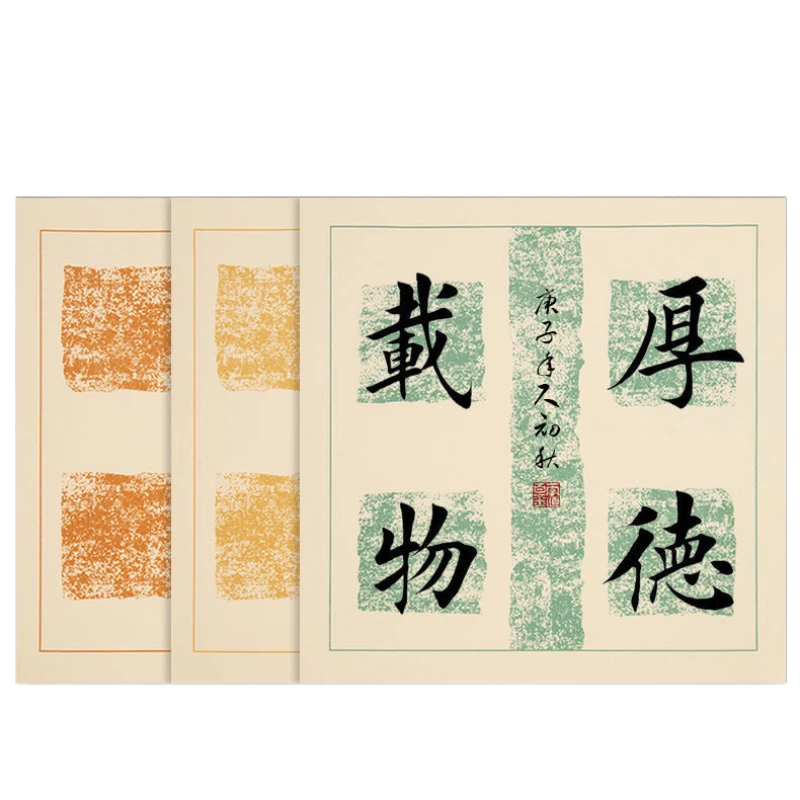 厚德
載物
庚子年初秋